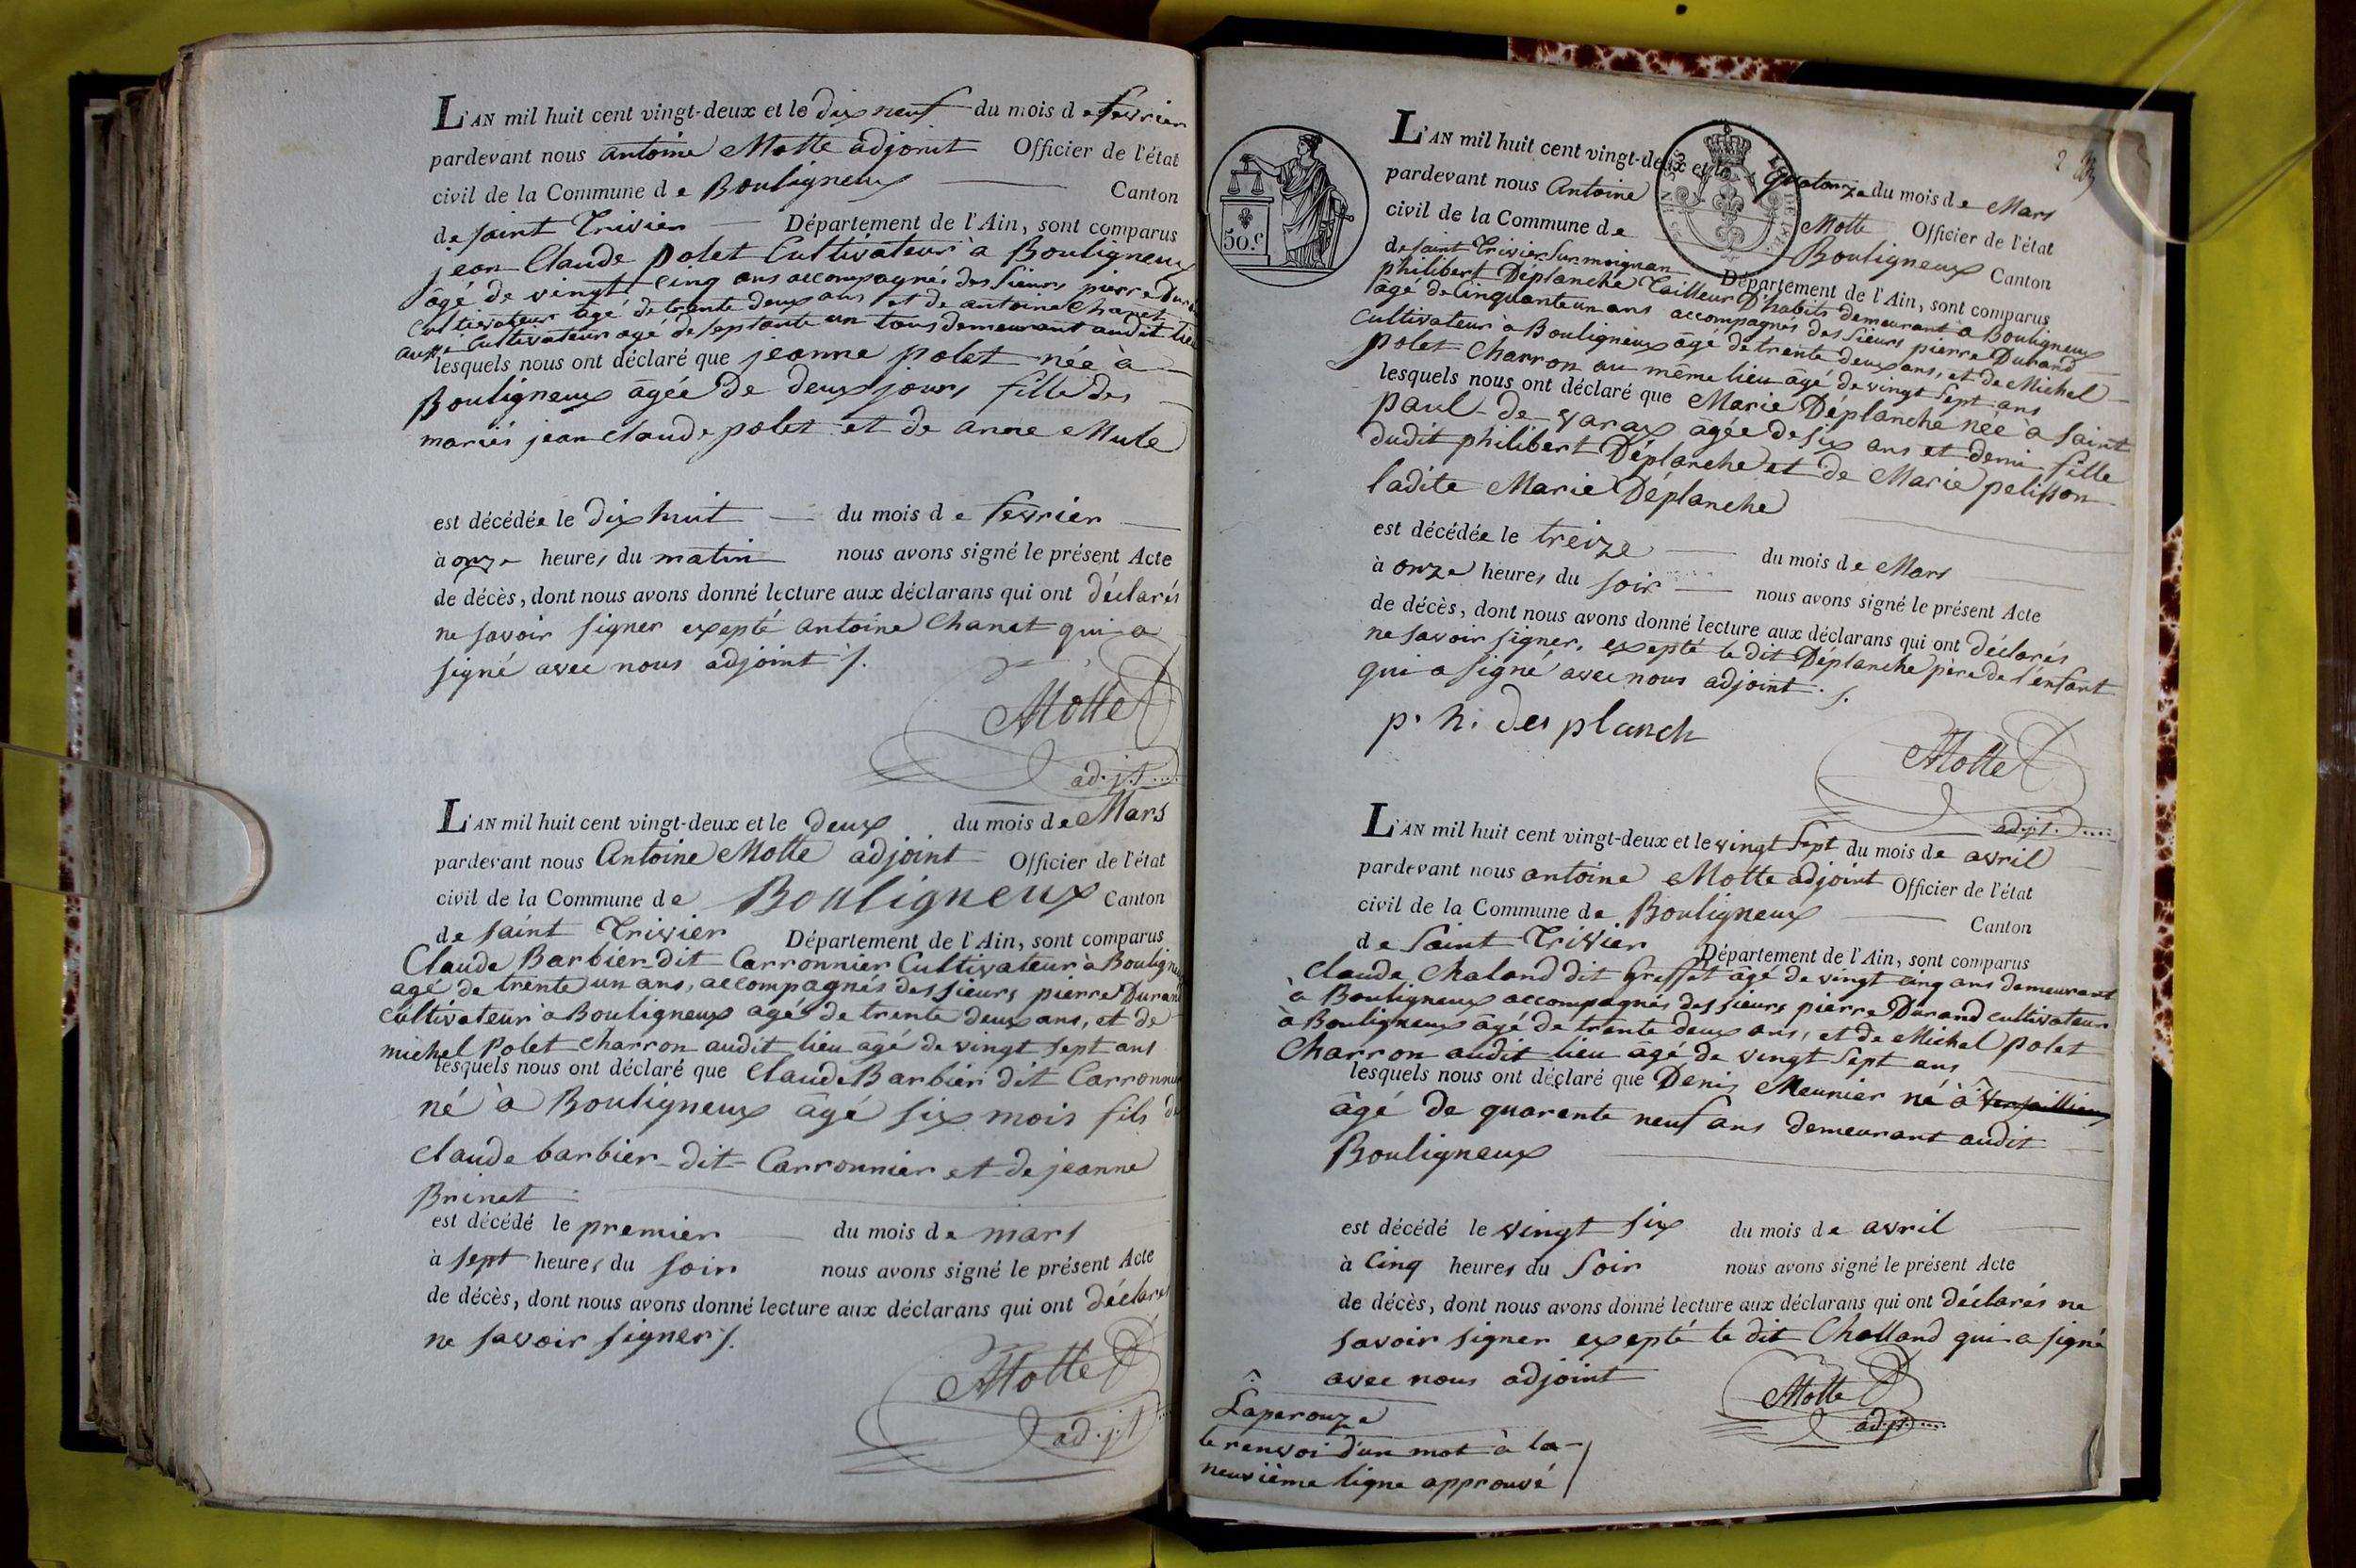 L'AN mil huit cent vingt-deux et le dix neuf du mois de fevrier
pardevant nous antoine Motte adjoint Officier de l'état
civil de la Commune de Bouligneux Canton
de saint Trivier Département de l'Ain, sont comparus
jean Claude polet Cultivateur à Bouligneux
âgé de vingt cinq ans accompagnés des sieurs pierre Durand
Cultivateur agé de trente deux ans et de antoine Chanet
aussi Cultivateur agé de septante un tous demeurant audit lieu
lesquels nous ont déclaré que jeanne polet née a
Bouligneux âgée De deux jours fille des
mariés jean claude polet et de anne Mule
est décédée le dix huit du mois de fevrier
à onze heures du matin nous avons signé le présent Acte
de décès, dont nous avons donné lecture aux déclarans qui ont déclarés
ne savoir signer expepté antoine Chanet qui a
signé avec nous adjoint ⸍.
Motte
ad.j.t
L'AN mil huit cent vingt-deux et le deux du mois de Mars
pardevant nous Antoine Motte adjoint Officier de l'état
civil de la Commune de Bouligneux Canton
de saint Trivier Département de l'Ain, sont comparus
Claude Barbier dit Carronnier Cultivateur à Bouligneux
agé de trente un ans, accompagnés des sieurs pierre Durand
cultivateur à Bouligneux agé de trente deux ans, et de
michel Polet charron audit lieu âgé de vingt sept ans
lesquels nous ont déclaré que Claude Barbier dit Carronnier
né à Bouligneux âgé six mois fils de
claude barbier dit Carronnier et de jeanne
Brinet
est décédé le premier du mois de mars
à sept heures du soir nous avons signé le présent Acte
de décès, dont nous avons donné lecture aux déclarans qui ont déclarés
ne savoir signer ⸍.
Motte
ad.j.t
50.c
L'AN mil huit cent vingt-deux et le quatorze du mois de Mars
pardevant nous Antoine Motte Officier de l'état
civil de la Commune de Bouligneux Canton
de saint Trivier sur moignan Département de l'Ain, sont comparus
philibert Déplanche Tailleur D'habits demeurant à Bouligneux
agé de Cinquante un ans accompagnés des sieurs pierre Durand
cultivateur à Bouligneux âgé de trente deux ans, et de Michel
polet Charron au même lieu âgé de vingt sept ans
lesquels nous ont déclaré que Marie Déplanche née à saint
paul de varax agée de six ans et demi fille
dudit philibert Déplanche et de Marie pelisson
ladite Marie Déplanche
est décédée le treize du mois de Mars
à onze heures du soir nous avons signé le présent Acte
de décès, dont nous avons donné lecture aux déclarans qui ont déclarés
ne savoir signer, expepté le dit Déplanche père de l'enfant
qui a signé avec nous adjoint ⸍.
p. h. des planch
Motte
adj.t
L'AN mil huit cent vingt-deux et le vingt sept du mois de avril
pardevant nous antoine Motte adjoint Officier de l'état
civil de la Commune de Bouligneux Canton
de Saint Trivier Département de l'Ain, sont comparus
Claude Chaland dit Gresset agé de vingt cinq ans demeurant
à Bouligneux accompagnés des sieurs pierre Durand cultivateur
à Bouligneux âgé de trente deux ans, et de Michel polet
Charron audit lieu âgé de vingt sept ans
lesquels nous ont déclaré que Denis Meunier né à versaillieux
âgé de quarente neuf ans demeurant audit
Bouligneux
est décédé le vingt six du mois de avril
à Cinq heures du Soir nous avons signé le présent Acte
de décès, dont nous avons donné lecture aux déclarans qui ont déclarés ne
savoir signer expepté le dit Challand qui a signé
avec nous adjoint
Motte
adjt
Laperouze
le renvoi d'un mot à la
neuvième ligne approuvé